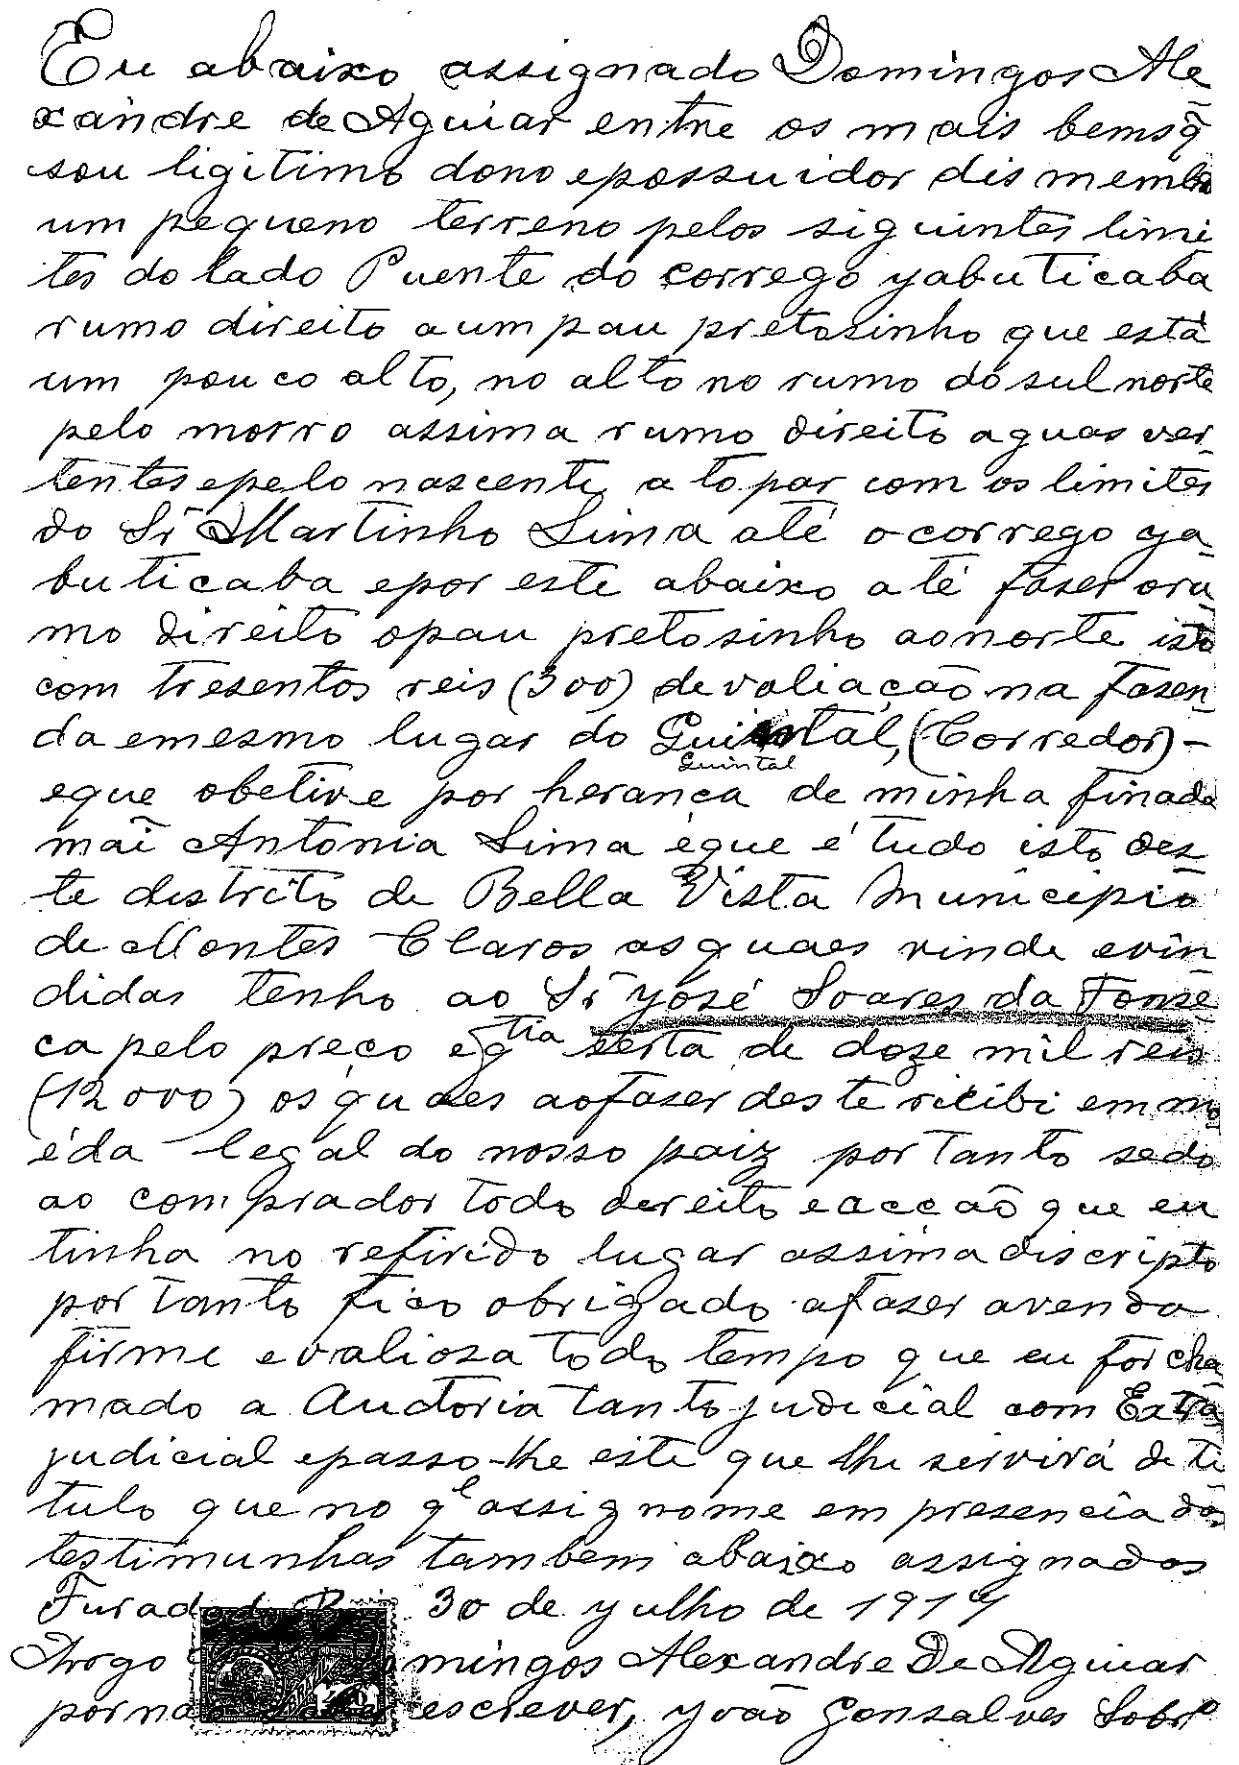 Eu abaixo assignado Domingos Ale
xandre de Aguiar entre os mais bems q̃
sou ligitimo dono epossuidor dismembro
um pequeno terreno pelos siguintes limi
tes do lado Puente do corrego yabuticaba
rumo direito aum pau pretosinho que está
um pouco alto, no alto no rumo do sul norte
pelo morro assima rumo direito aguas ver
tentes epelo nascente a topar com os limites
do Sr Martinho Lima até o corrego ya
buticaba epor este abaixo até faser oru
mo direito opau pretosinho aonorte isto
com tresentos reis (300) devaliação na fasen
da emesmo lugar do Quintal, (Corredor) -
Quintal
eque obetive por herança de minha finada
mãi Antonia Lima eque é tudo isto des
te distrito de Bella Vista Municipio
de Montes Claros as quaes vinde evin
didas tenho ao Sr yosé Soares da Fonse
ca pelo preço eqtia serta de doze mil reis
(12000) os quaes aofaser deste ricibi em mo
éda legal do nosso paiz portanto sedo
ao comprador todo dereito eacção que eu
tinha no refirido lugar assima discripto
portanto fico obrigado afaser avenda
firme evaliosa todo tempo que eu for cha
mado a Auctoria tanto judicial com Extra
judicial epasso-lhe este que lhe servirá de ti
tulo que no ql assignome em presencia das
testimunhas tambem abaixo assignados
Furado do 30 de yulho de 1919
Arogo Domingos Alexandre De Aguiar
por não escrever, yoão Gonsalves Sobrº